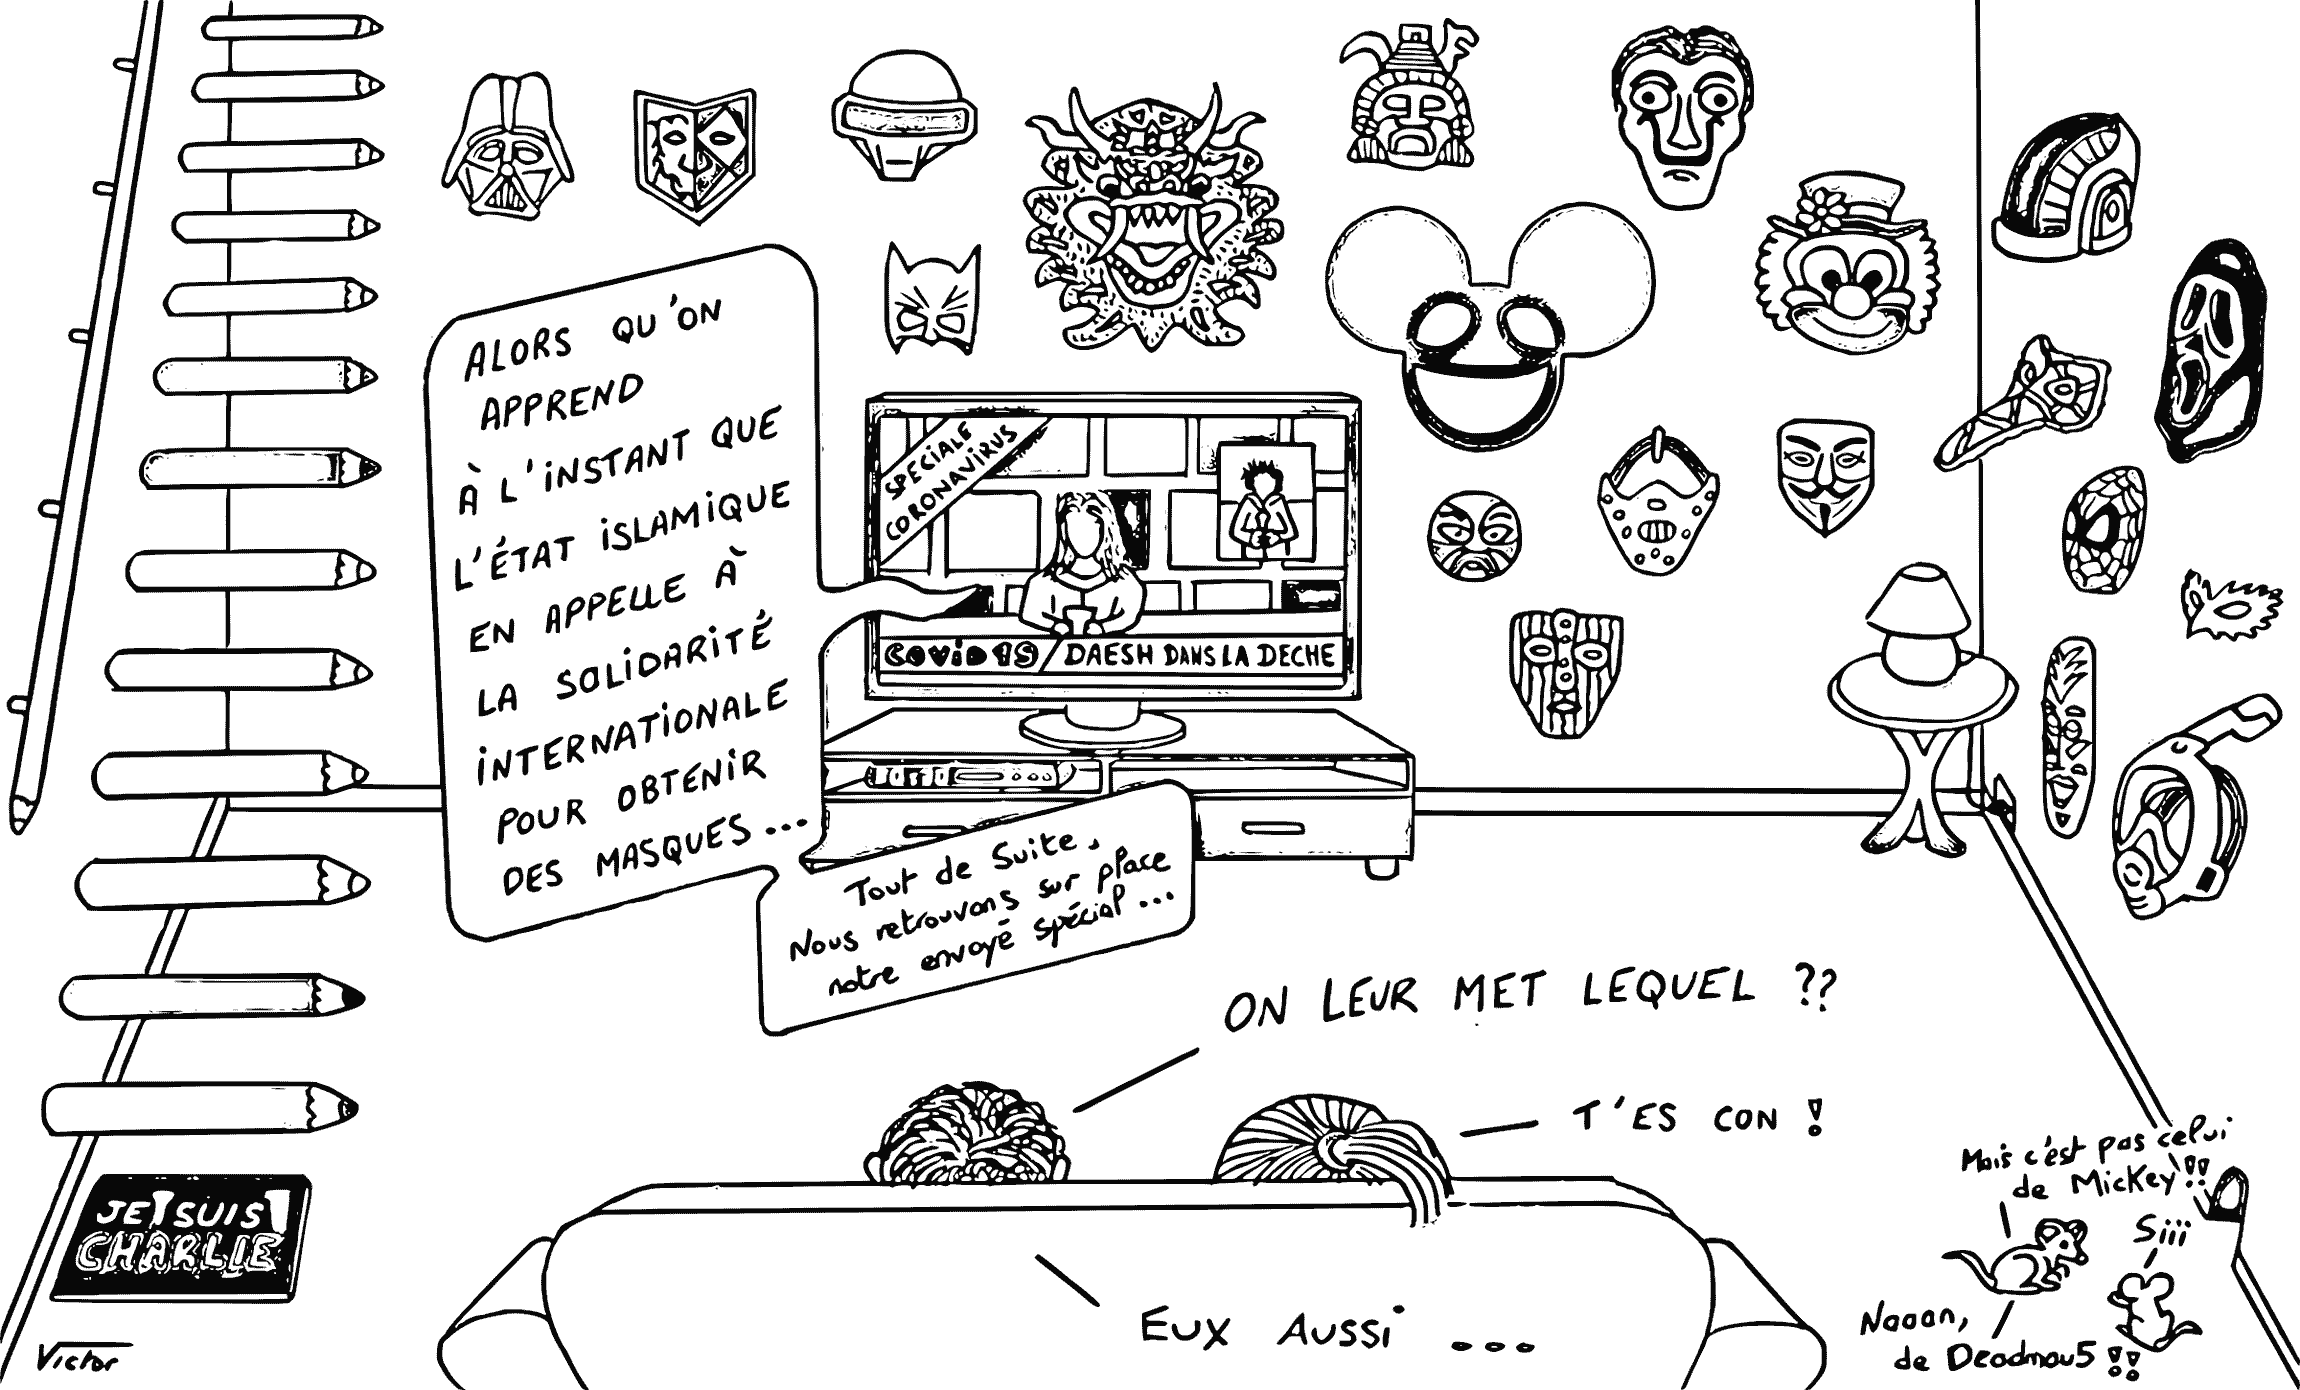 ALORS QU'ON
APPREND
À L'INSTANT QUE
L'ÉTAT ISLAMIQUE
EN APPELLE À
LA SOLIDARITÉ
INTERNATIONALE
POUR OBTENIR
DES MASQUES...
SPECIALE
CORONAVIRUS
COVID 19 / DAESH DANS LA DECHE
Tout de Suite,
Nous retrouvons sur place
notre envoyé spécial...
ON LEUR MET LEQUEL ??
T'ES CON !
EUX AUSSI ...
Mais c'est pas celui
de Mickey !!
Siii
Naaan,
de Deadmau5 !!
JE SUIS
CHARLIE
Victor